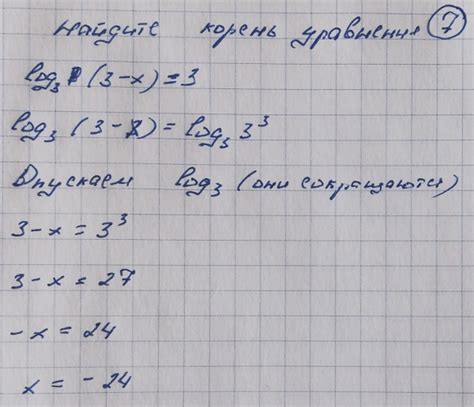 Найдите корень уравнения 7
log₃ (3-x)=3
log₃ (3-x) = log₃ 3³
Опускаем log₃ (они сокращаются)
3-x = 3³
3-x = 27
-x = 24
x = -24